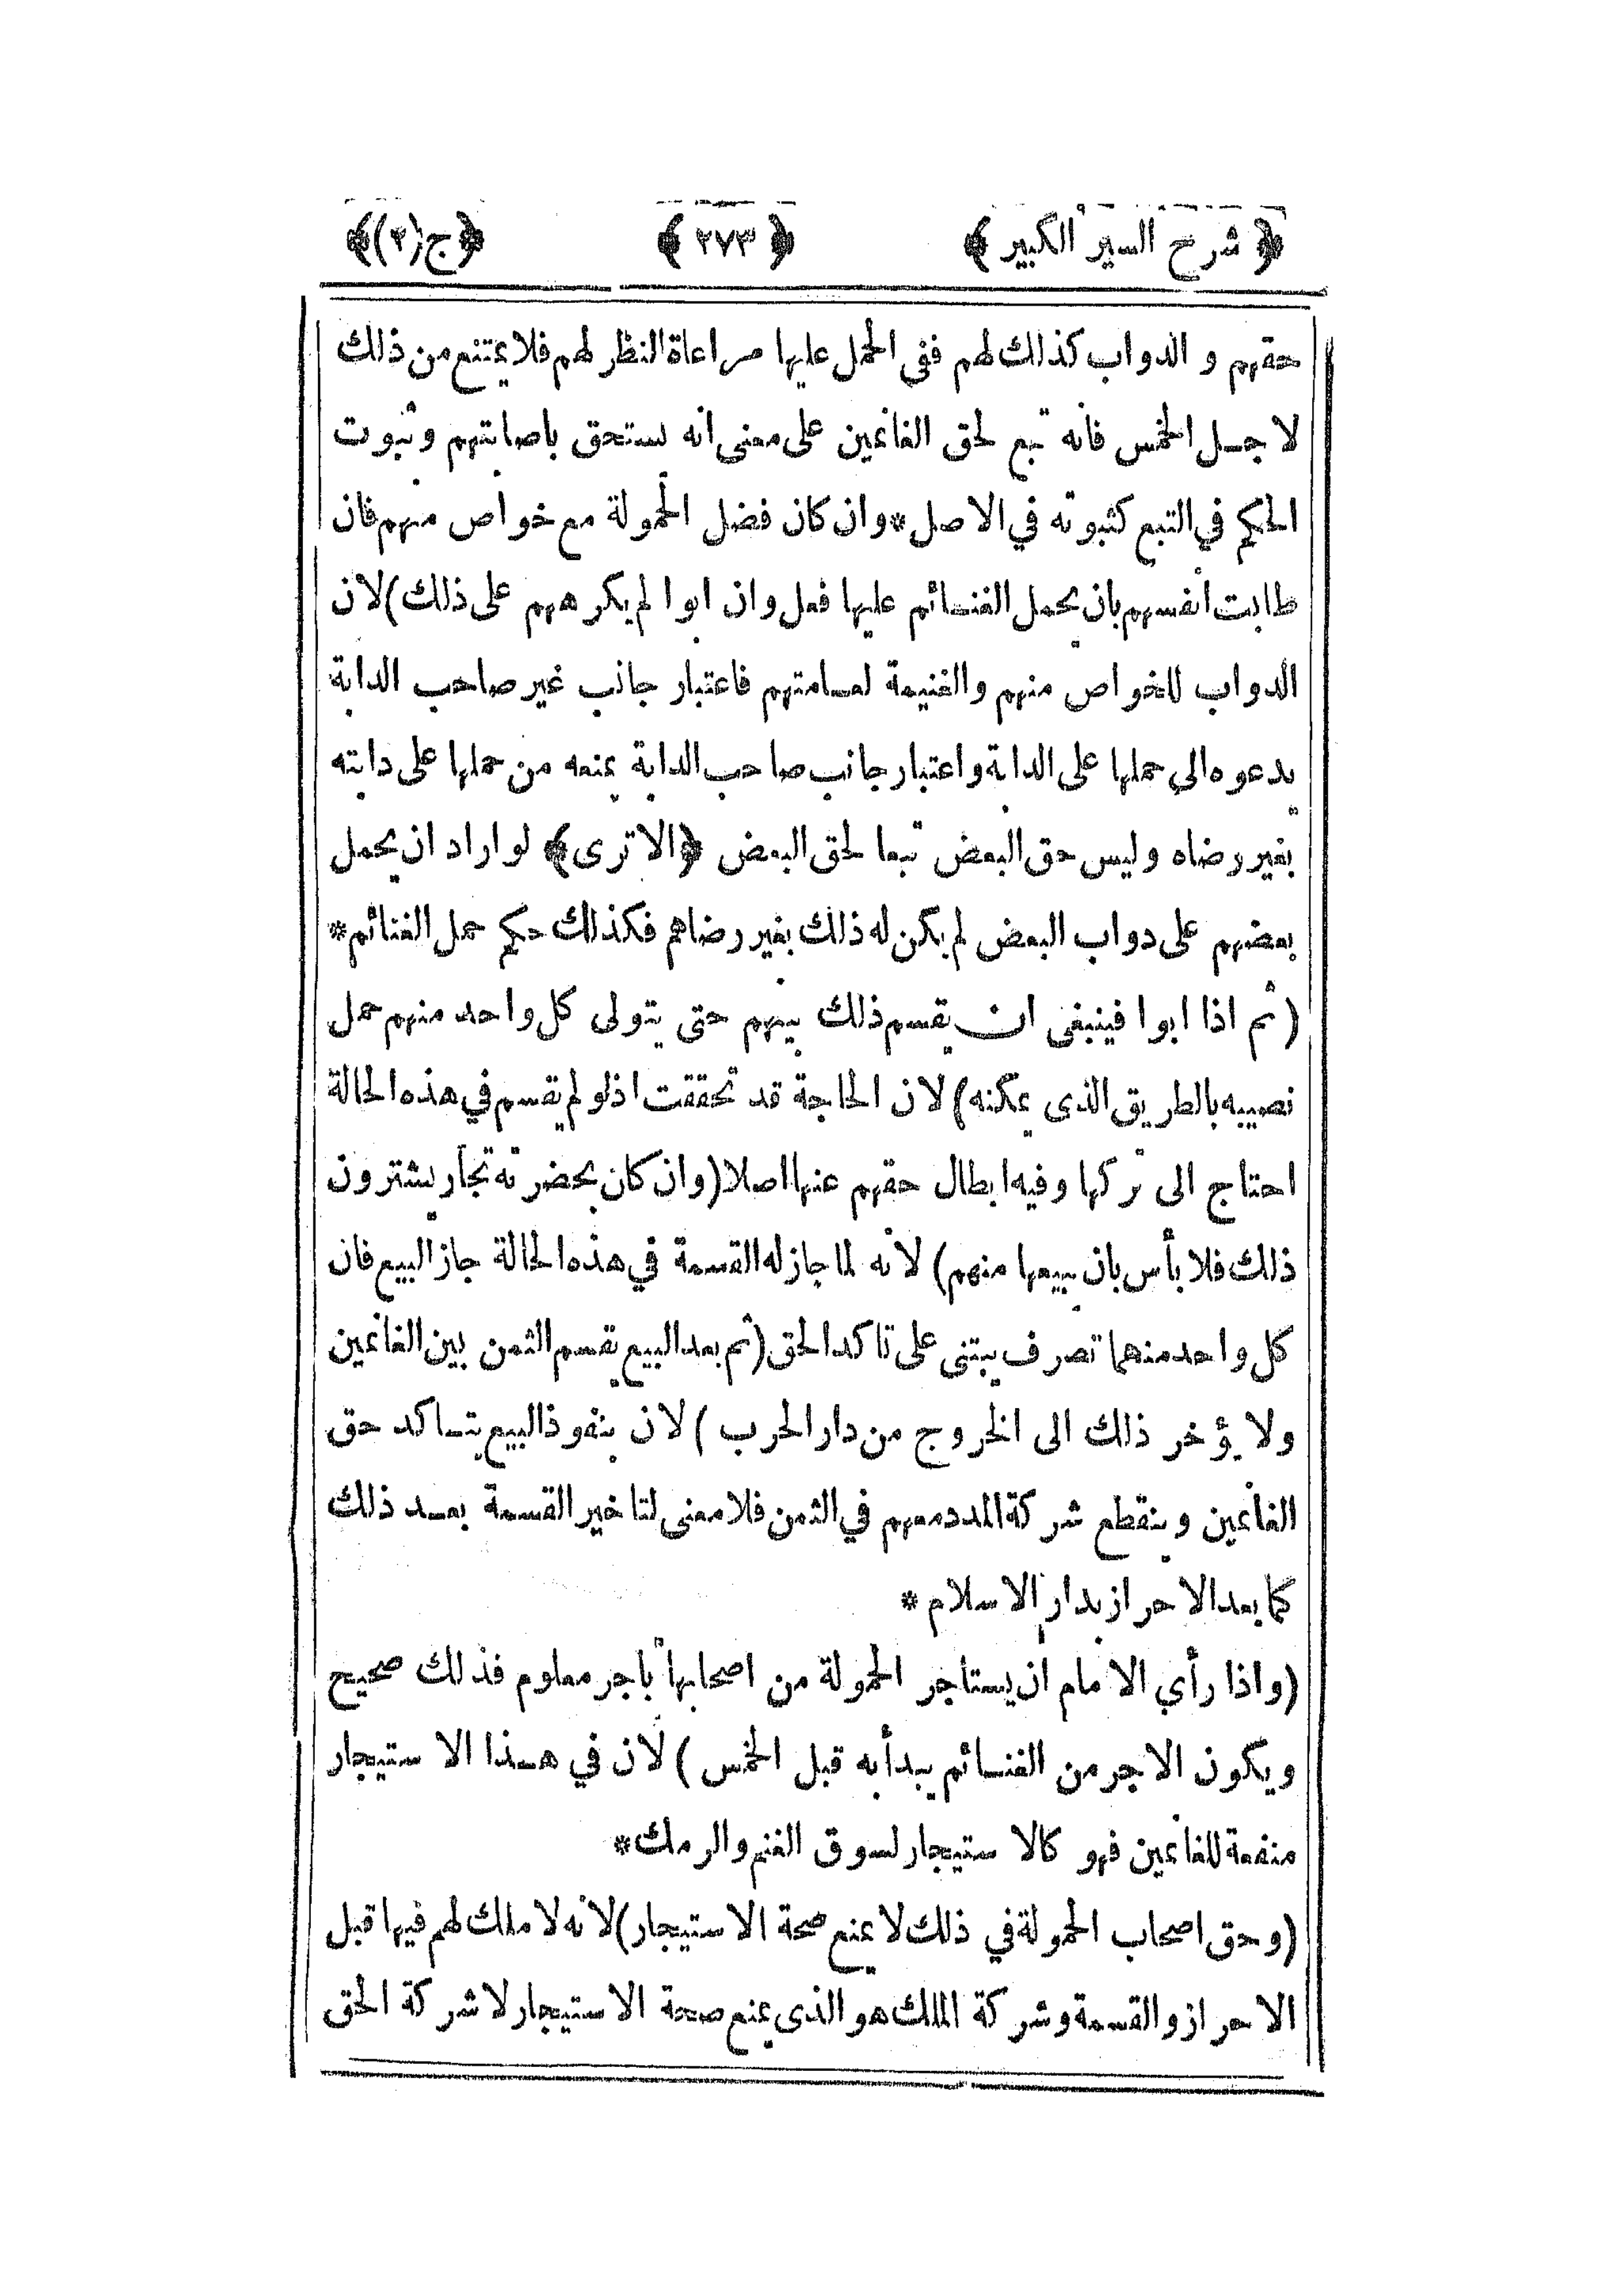 ﴿ شرح السير الكبير ﴾ ﴿ ٢٧٣ ﴾ ﴿ج(٢)﴾
حقهم و الدواب كذلك لهم ففى الحمل عليها مراعاة النظر لهم فلا يمتنع من ذلك
لا جل الخمس فانه تبع لحق الغانمين على معنى انه يستحق باصابتهم وثبوت
الحكم في التبع كثبوته في الاصل * وان كان فضل الحمولة مع خواص منهم فان
طابت انفسهم بان يحمل الغنائم عليها فعل وان ابوا لم يكرههم على ذلك) لان
الدواب للخواص منهم والغنيمة لعامتهم فاعتبار جانب غير صاحب الدابة
يدعوه الى حملها على الدابة و اعتبار جانب صاحب الدابة يمنعه من حملها على دابته
بغير رضاه وليس حق البعض تبعا لحق البعض ﴿الا ترى﴾ لو اراد ان يحمل
بعضهم على دواب البعض لم يكن له ذلك بغير رضاهم فكذلك حكم حمل الغنائم *
(ثم اذا ابوا فينبغى ان يقسم ذلك بينهم حتى يتولى كل واحد منهم حمل
نصيبه بالطريق الذى يمكنه) لان الحاجة قد تحققت اذلو لم يقسم في هذه الحالة
احتاج الى تركها وفيه ابطال حقهم عنها اصلا (وان كان بحضرته تجار يشترون
ذلك فلا بأس بان يبيعها منهم) لانه لما جاز له القسمة في هذه الحالة جاز البيع فان
كل واحد منهما تصرف يبتنى على تاكد الحق (ثم بعد البيع يقسم الثمن بين الغانمين
ولا يؤخر ذلك الى الخروج من دار الحرب ) لان بنفوذ البيع يتاكد حق
الغانمين وينقطع شركة المدد معهم في الثمن فلا معنى لتاخير القسمة بعد ذلك
كما بعد الاحراز بدار الاسلام *
(واذا رأي الامام ان يستاجر الحمولة من اصحابها باجر معلوم فذلك صحيح
ويكون الاجر من الغنائم يبدأ به قبل الخمس ) لان في هذا الاستيجار
منفعة للغانمين فهو كالاستيجار لسوق الغنم والرمك *
(وحق اصحاب الحمولة في ذلك لا يمنع صحة الاستيجار) لانه لا ملك لهم فيها قبل
الاحراز والقسمة وشركة الملك هو الذى يمنع صحة الاستيجار لا شركة الحق